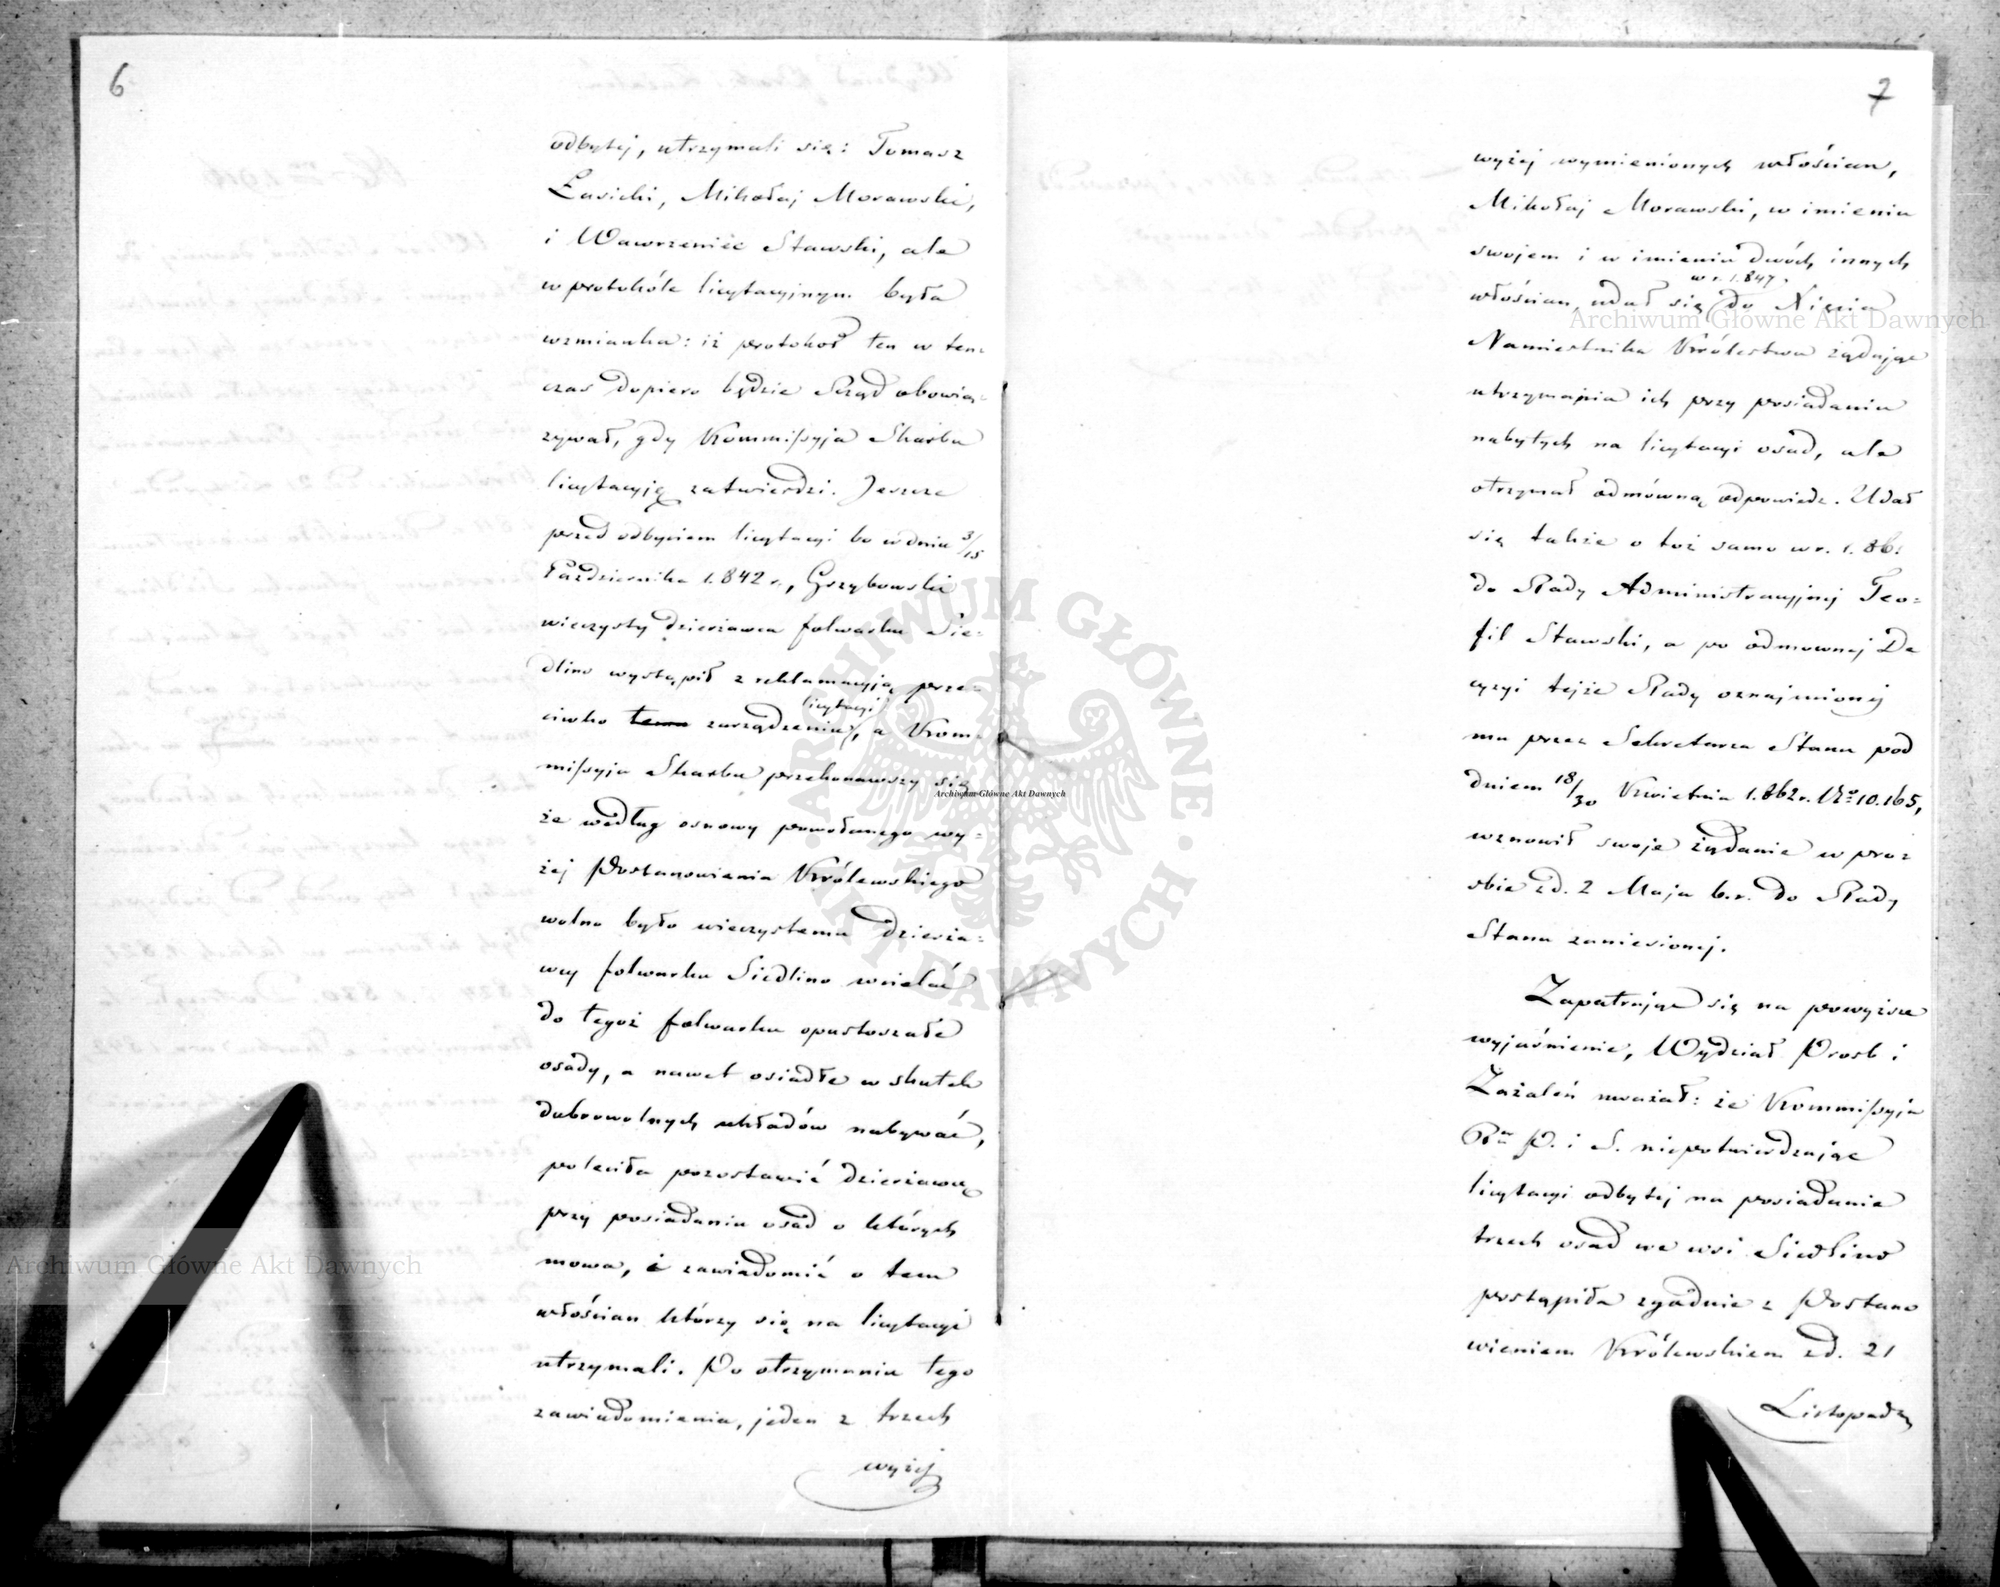 6
odbytej, utrzymali się: Tomasz
Łasicki, Mikołaj Morawski,
i Wawrzeniec Stawski, ale
w protokóle licytacyjnym była
wzmianka: iż protokoł ten w ten-
czas dopiero będzie Rząd obowią-
zywał, gdy Kommissyja Skarbu
licytacyję zatwierdzi. Jeszcze
przed odbyciem licytacyi bo w dniu 3/15
Października 1.842 r., Grzybowski
wieczysty dzierżawca folwarku Sie-
dlino wystąpił z reklamacyją prze-
ciwko temu zarządzeniu licytacyi, a Kom-
missyja Skarbu przekonawszy się
że według osnowy powołanego wy-
żej Postanowienia Królewskiego
wolno było wieczystemu dzierża-
wcy folwarku Siedlino wcielać
do tegoż folwarku opustoszałe
osady, a nawet osiadłe w skutek
dobrowolnych układów nabywać,
poleciła pozostawić dzierżawcę
przy posiadaniu osad o których
mowa, i zawiadomić o tem
włościan którzy się na licytacyi
utrzymali. Po otrzymaniu tego
zawiadomienia, jeden z trzech
wyżej
7
wyżej wymienionych włościan,
Mikołaj Morawski, w imieniu
swojem i w imieniu dwóch innych
włościan, udał się w r. 1.847. do Xięcia
Namiestnika Królestwa żądając
utrzymania ich przy posiadaniu
nabytych na licytacyi osad, ale
otrzymał odmówną odpowiedz. Udał
się także o toż samo w r. 1.86.
do Rady Administracyjnej Teo-
fil Stawski, a po odmownej De
cyzyi tejże Rady oznajmionej
mu przez Sekretarza Stanu pod
dniem 18/30 Kwietnia 1.862 r. No 10.165,
wznowił swoje żądanie w proz
sbie zd. 2 Maja b.r. do Rady
Stanu zaniesionej.
Zapatrując się na powyższe
wyjaśnienie, Wydział Prosb i
Zażaleń uważał: że Kommissyja
P. i S. niepotwierdzając
licytacyi odbytej na posiadanie
trzech osad we wsi Siedlino
postąpiła zgodnie z Postano
wieniem Królewskiem zd. 21
Listopada
Archiwum Główne Akt Dawnych
Archiwum Główne Akt Dawnych
Archiwum Główne Akt Dawnych
ARCHIWUM GŁÓWNE AKT DAWNYCH